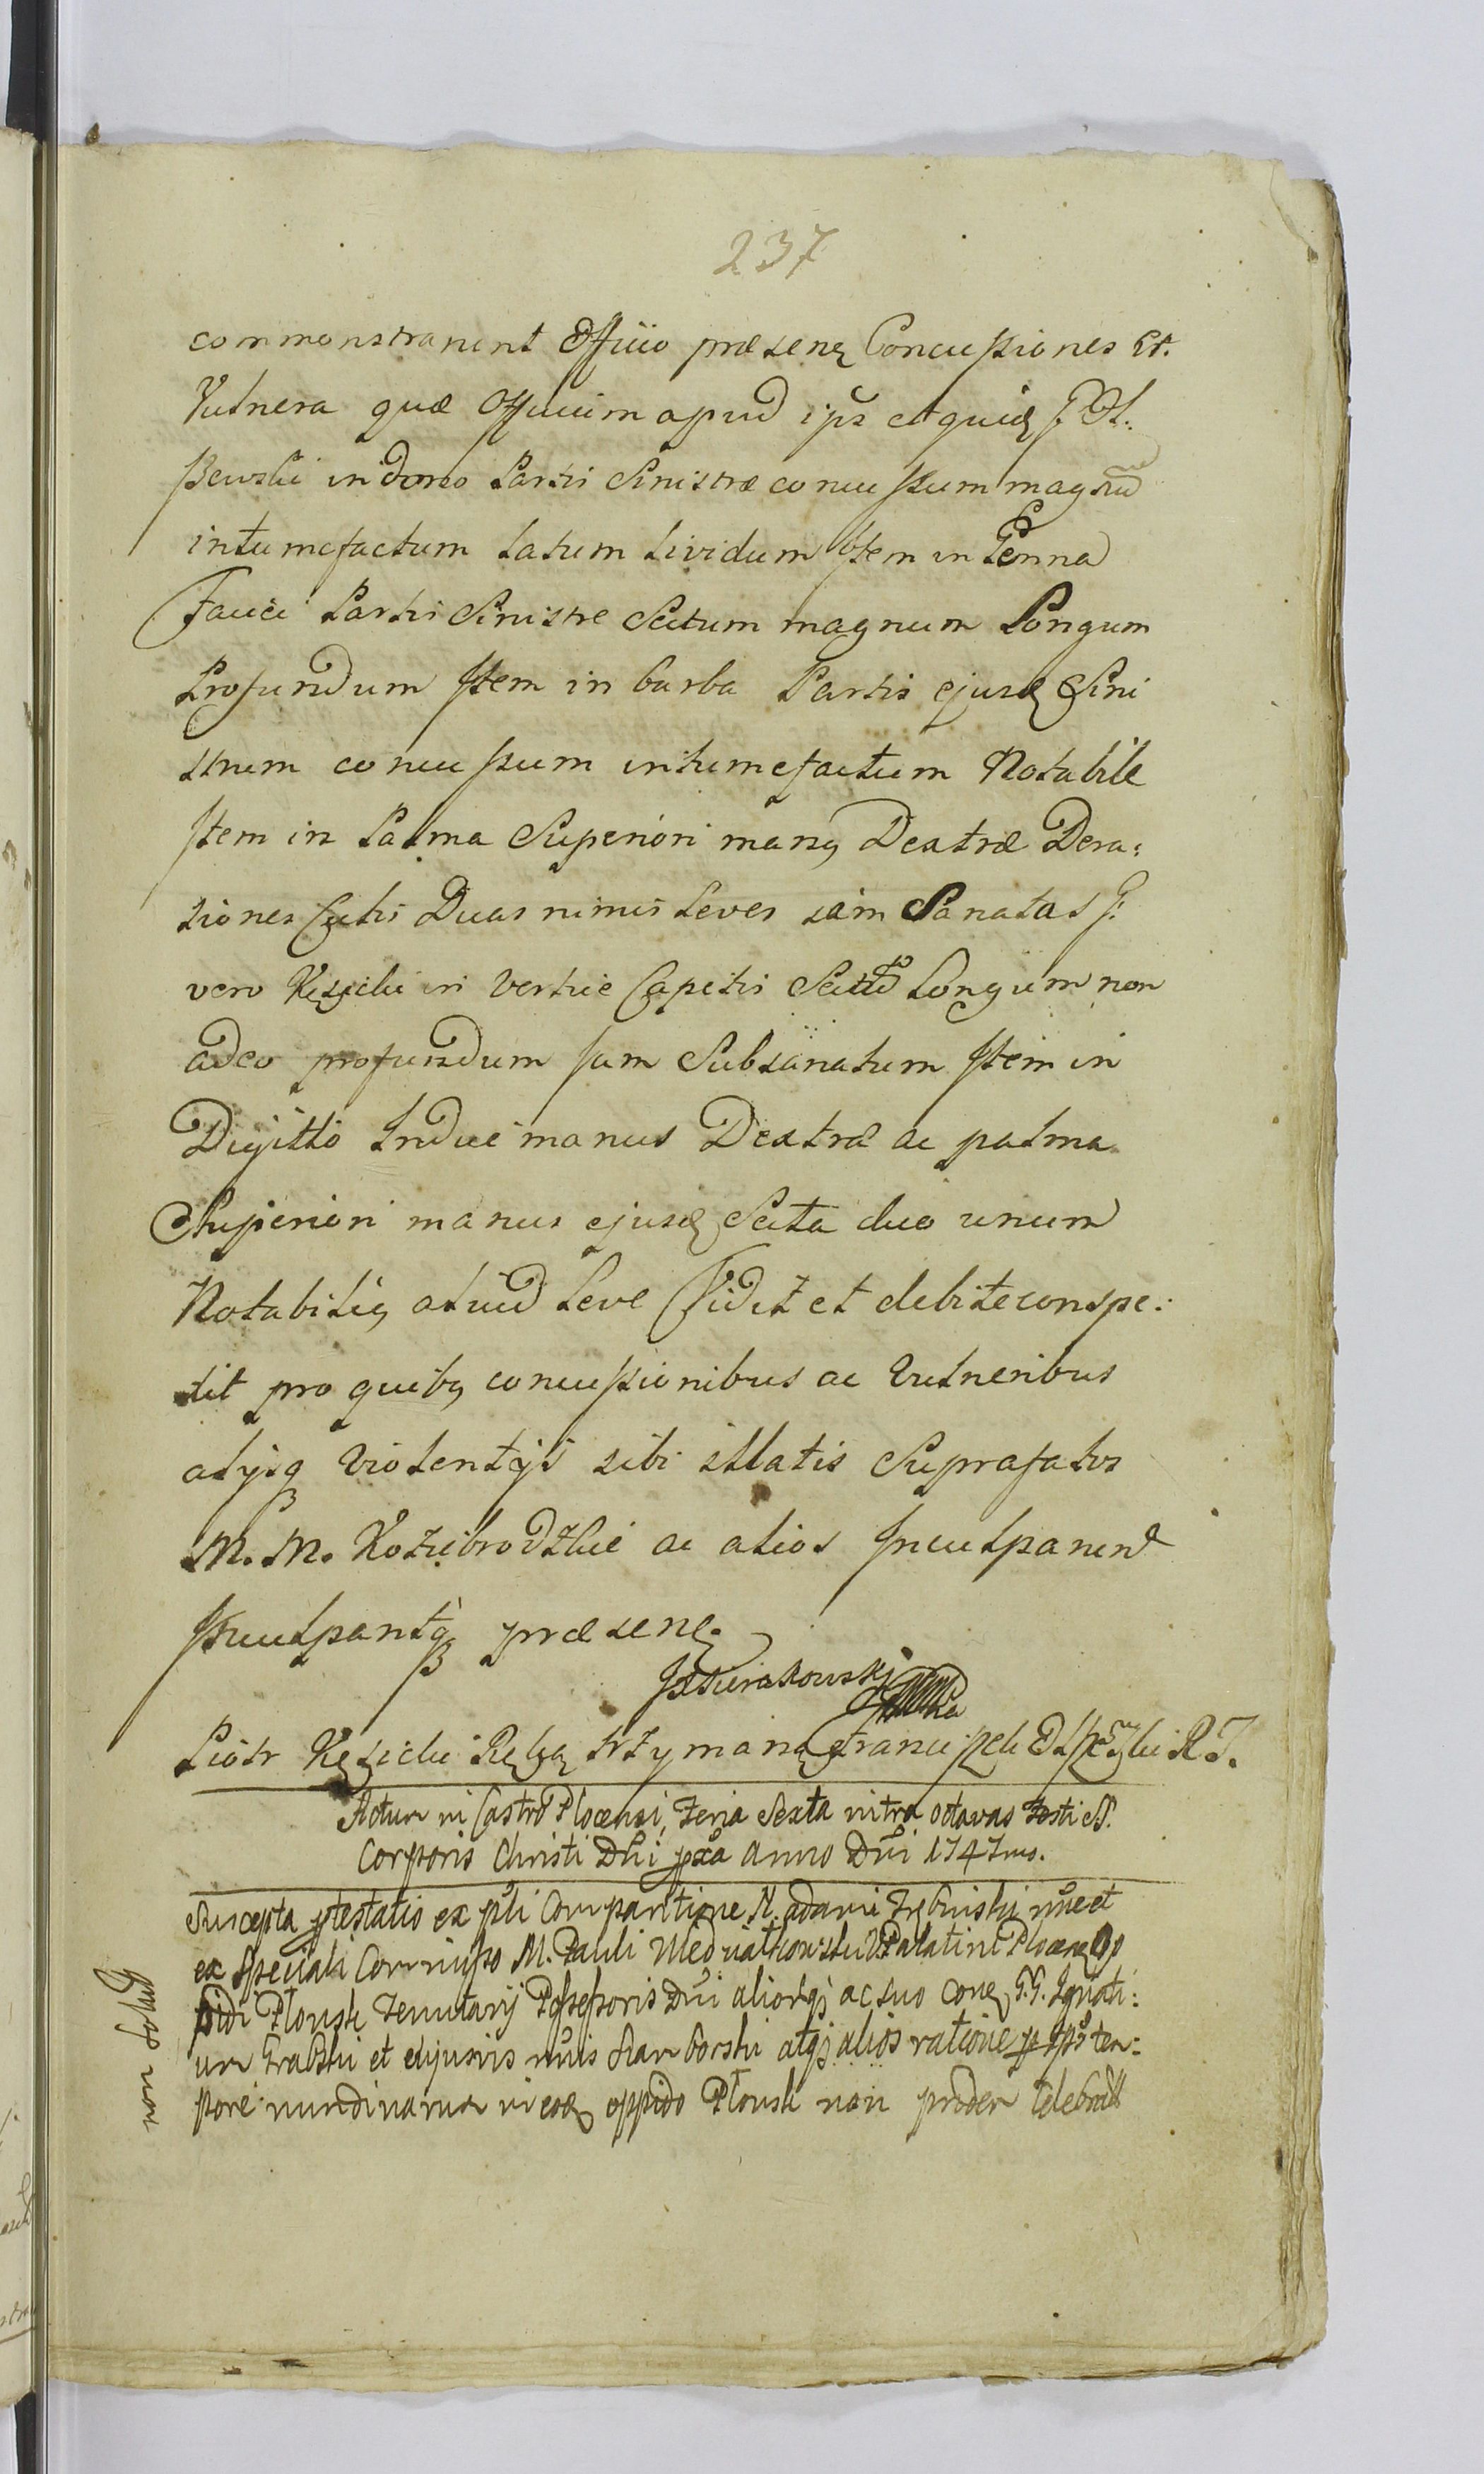 237
commonstrarunt Officio præsenꝫ Concussiones et
Vulnera quæ Officium apud ips et quidꝫ G. Ol:
szewski in dorso Partis Sinistræ concussum magnū
intumefactum Latum Lividum Item in Genna
Fauci Partis Sinistre Scitum magnum Longum
Profundum Item in barba Partis ejusdꝫ Sini
strum concussum intumefactum Notabile
Item in Palma Superiori manꝰ Dextræ Dera:
siones Cutis Duas nimis Leves iam Sanatas G:
vero Kęsicki in Vertice Capitis Scitū Longum non
adeo profundum Jam Subsanatum Item in
Digitto Indice manus Dextræ ac palma
Superiori manus ejusdꝫ Scita duo unum
Notabiliꝰ aliud Leve Vidit et debite conspe:
xit pro quibꝰ concussionibus ac Vulneribus
alysqꝫ Violentijs sibi illatis Suprafatos
M. M. Koziebrodzkie ac alios Inculparunt
Inculpantqꝫ præsenꝫ
Piotr Kęsicki Ręką trzymaną R J.
Actum in Castro Plocensi, Feria Sexta intra octavas Festi S.
Corporis Christi Dni pxa Anno Dni 1747mo.
Suscepta ptestatio ex pli Comparitione N. Adami mne et
ex Speciali Commisso M. Pauli Palatini Plocenꝫ Op
pidi Płonsk Tenutarij Possessoris Dni aliorqꝫ ac suo cone G.G. Ignati:
um Grabski et elijusvis mnis atqꝫ alios ratione ips tem:
pore nundinarum in eodꝫ oppido Płonsk non pridem Celebratt
non solut